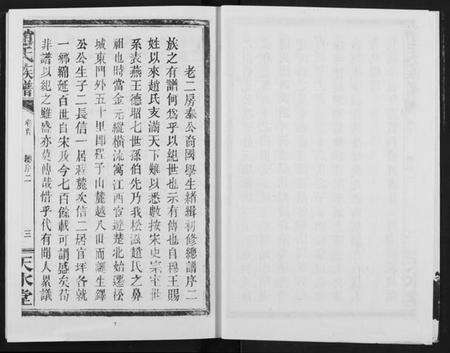 老二房泰公裔國學生緒緝初修總譜序二
族之有譜何為乎以紀世也示有傳也自穆王賜
姓以來趙氏支滿天下難以悉數按宋史宗室世
系表燕王德昭七世孫伯先乃我松滋趙氏之鼻
祖也時當金元縱橫流寓江西宦遊楚北始遷松
城東門外五十里即程子山麓越八世而誕生鐸
公公生子二長信一居程麓次信二居官坪各就
一鄉綿延百世自宋及今七百餘載可謂盛矣苟
非譜以紀之雖盛亦莫傳哉惜乎代有聞人累議
趙氏族譜
卷首
總序二
三
天水堂